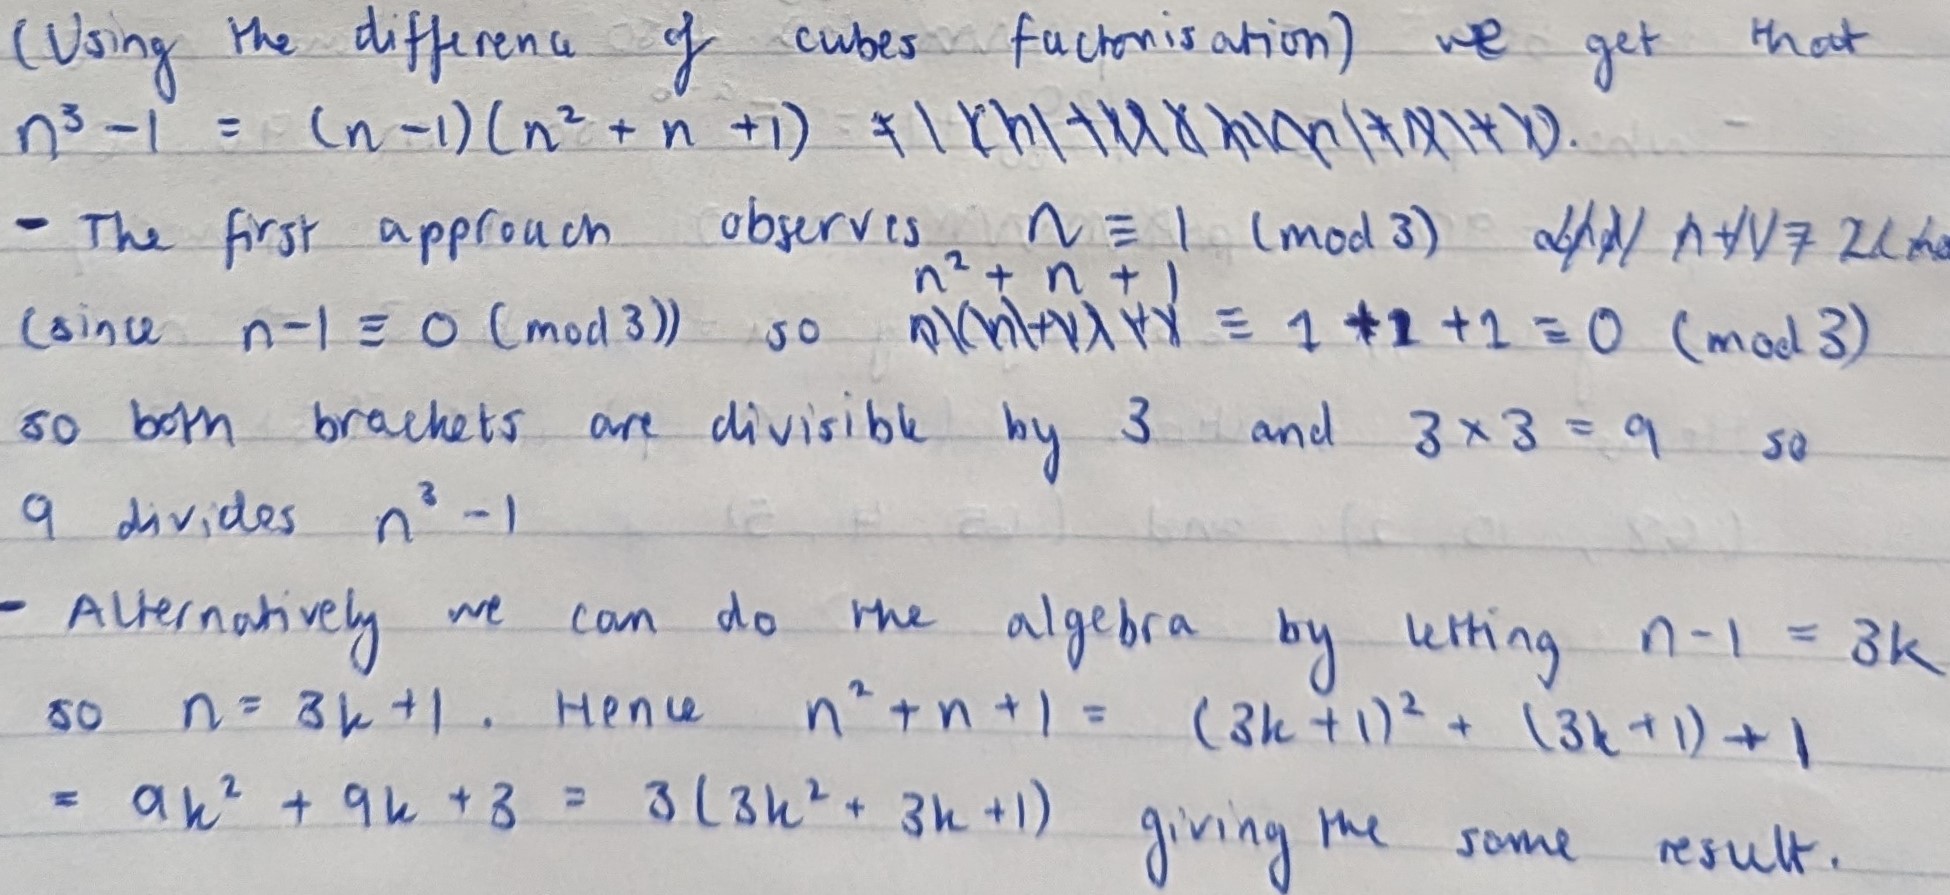 (Using the difference of cubes factorisation) we get that
n³ - 1 = (n - 1)(n² + n + 1)
- The first approach observes n ≡ 1 (mod 3)
n² + n + 1
(since n-1 ≡ 0 (mod 3)) so ≡ 1 + 1 + 1 ≡ 0 (mod 3)
so both brackets are divisible by 3 and 3 × 3 = 9 so
9 divides n³ - 1
- Alternatively we can do the algebra by letting n - 1 = 3k
so n = 3k + 1. Hence n² + n + 1 = (3k + 1)² + (3k + 1) + 1
= 9k² + 9k + 3 = 3(3k² + 3k + 1) giving the same result.